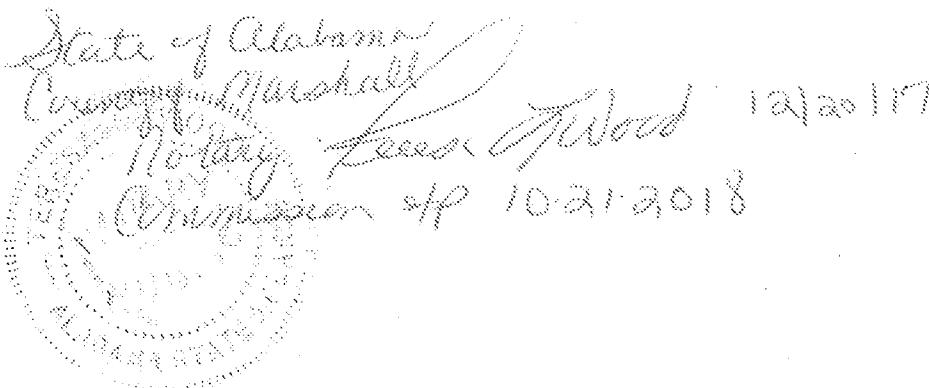 State of Alabama
County Marshall
Notary Wood 12/20/17
Commission exp 10-21-2018
ALABAMA STATE